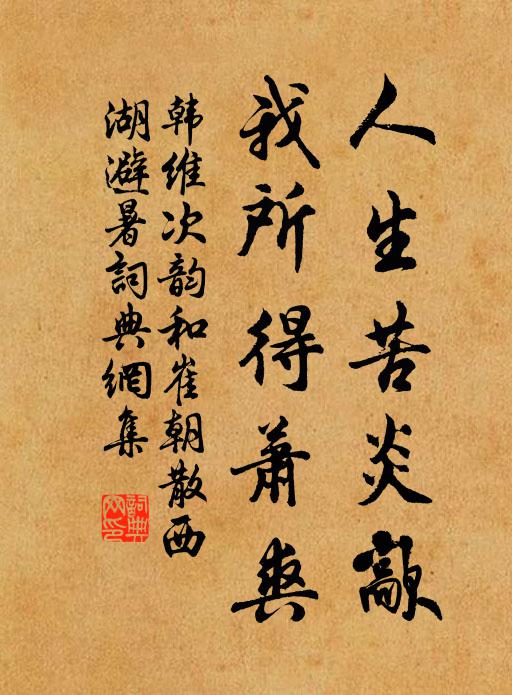 人生苦炎歊
我所得萧爽
韩维次韵和崔朝散西
湖避暑詞典網集
詞典網印